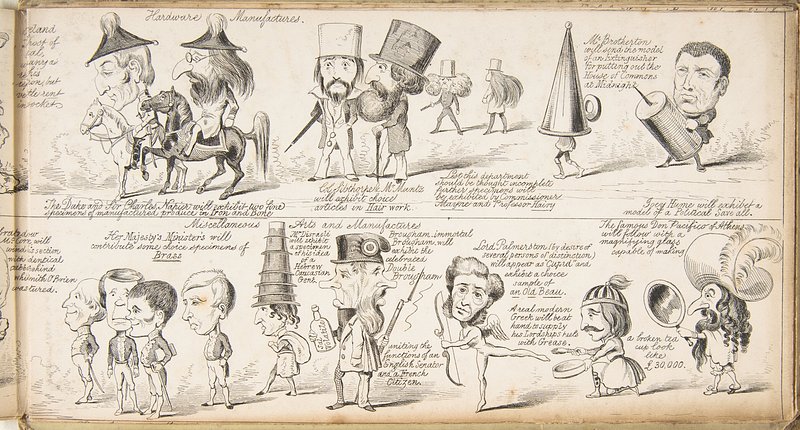 Hardware Manufactures.
Mr Brotherton
will send the model
of an Extinguisher
for putting out the
House of Commons
at Midnight
The Duke and Sir Charles Napier will exhibit two fine
specimens of manufactured produce in Iron and Bone
Col. Sibthorp & Mr Muntz
will exhibit choice
articles in Hair work
Lest this department
should be thought incomplete
further specimens will
be exhibited by Commissioner
Mayne and Professor
Joey Hume will exhibit a
model of a Political Save all.
Miscellaneous Arts and Manufactures
Her Majesty's Ministers will
contribute some choice specimens of
Brass
will exhibit
a specimen
of the Id
of a
Hebrew
Caucasian
Gent.
Brougham, immortal
Brougham, will
exhibit the
celebrated
Double
Brougham
uniting the
functions of an
English Senator
and a French
Citizen.
Lord Palmerston (by desire of
several persons of distinction)
will appear as Cupid and
exhibit a choice
sample of
an Old Beau.
A real modern
Greek will be at
hand to supply
his Lordship's heels
with Grease.
The famous Don Pacifico of Athens
will follow with a
magnifying glass
capable of making
a broken tea
cup look
like
£30,000.